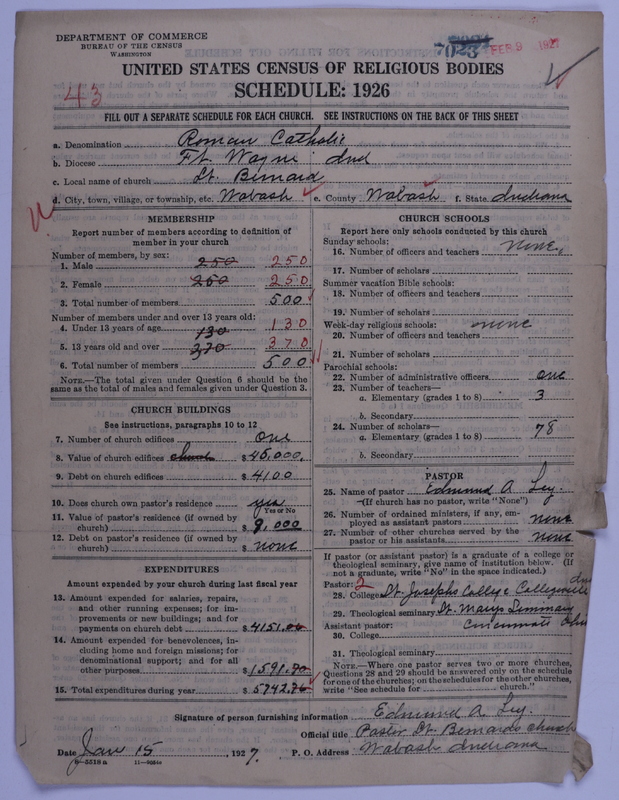 DEPARTMENT OF COMMERCE
BUREAU OF THE CENSUS
WASHINGTON
FEB 9 1927
UNITED STATES CENSUS OF RELIGIOUS BODIES
43
SCHEDULE: 1926
FILL OUT A SEPARATE SCHEDULE FOR EACH CHURCH. SEE INSTRUCTIONS ON THE BACK OF THIS SHEET
a. Denomination Roman Catholic
b. Diocese Ft. Wayne Ind
c. Local name of church St. Bernard
d. City, town, village, or township, etc. Wabash e. County Wabash f. State Indiana
MEMBERSHIP
Report number of members according to definition of
member in your church
Number of members, by sex:
1. Male 250 250
2. Female 250 250
3. Total number of members 500
Number of members under and over 13 years old:
4. Under 13 years of age 130 130
5. 13 years old and over 370 370
6. Total number of members 500
NOTE.—The total given under Question 6 should be the
same as the total of males and females given under Question 3.
CHURCH BUILDINGS
See instructions, paragraphs 10 to 12
7. Number of church edifices one
8. Value of church edifices $45,000.
9. Debt on church edifices $4100
10. Does church own pastor's residence yes
Yes or No
11. Value of pastor's residence (if owned by
church) $9,000
12. Debt on pastor's residence (if owned by
church) $ none
EXPENDITURES
Amount expended by your church during last fiscal year
13. Amount expended for salaries, repairs,
and other running expenses; for im-
provements or new buildings; and for
payments on church debt $4151.
14. Amount expended for benevolences, in-
cluding home and foreign missions; for
denominational support; and for all
other purposes $1591.
15. Total expenditures during year $5742.
CHURCH SCHOOLS
Report here only schools conducted by this church
Sunday schools:
16. Number of officers and teachers none.
17. Number of scholars
Summer vacation Bible schools:
18. Number of officers and teachers
19. Number of scholars
Week-day religious schools: none
20. Number of officers and teachers
21. Number of scholars
Parochial schools:
22. Number of administrative officers one
23. Number of teachers—
a. Elementary (grades 1 to 8) 3
b. Secondary
24. Number of scholars—
a. Elementary (grades 1 to 8) 78
b. Secondary
PASTOR
25. Name of pastor Edmund A Ley.
(If church has no pastor, write "None")
26. Number of ordained ministers, if any, em-
ployed as assistant pastors none
27. Number of other churches served by the
pastor or his assistants none
If pastor (or assistant pastor) is a graduate of a college or
theological seminary, give name of institution below. (If
not a graduate, write "No" in the space indicated.)
Pastor: 2
28. College St. Josephs College Collegeville Ind
29. Theological seminary St. Marys Seminary
Assistant pastor: Cincinnati Ohio
30. College
31. Theological seminary
NOTE.—Where one pastor serves two or more churches,
Questions 28 and 29 should be answered only on the schedule
for one of the churches; on the schedules for the other churches,
write "See schedule for church."
Signature of person furnishing information Edmund A. Ley.
Official title Pastor St. Bernards Church
Date Jan 15 1927. P. O. Address Wabash Indiana